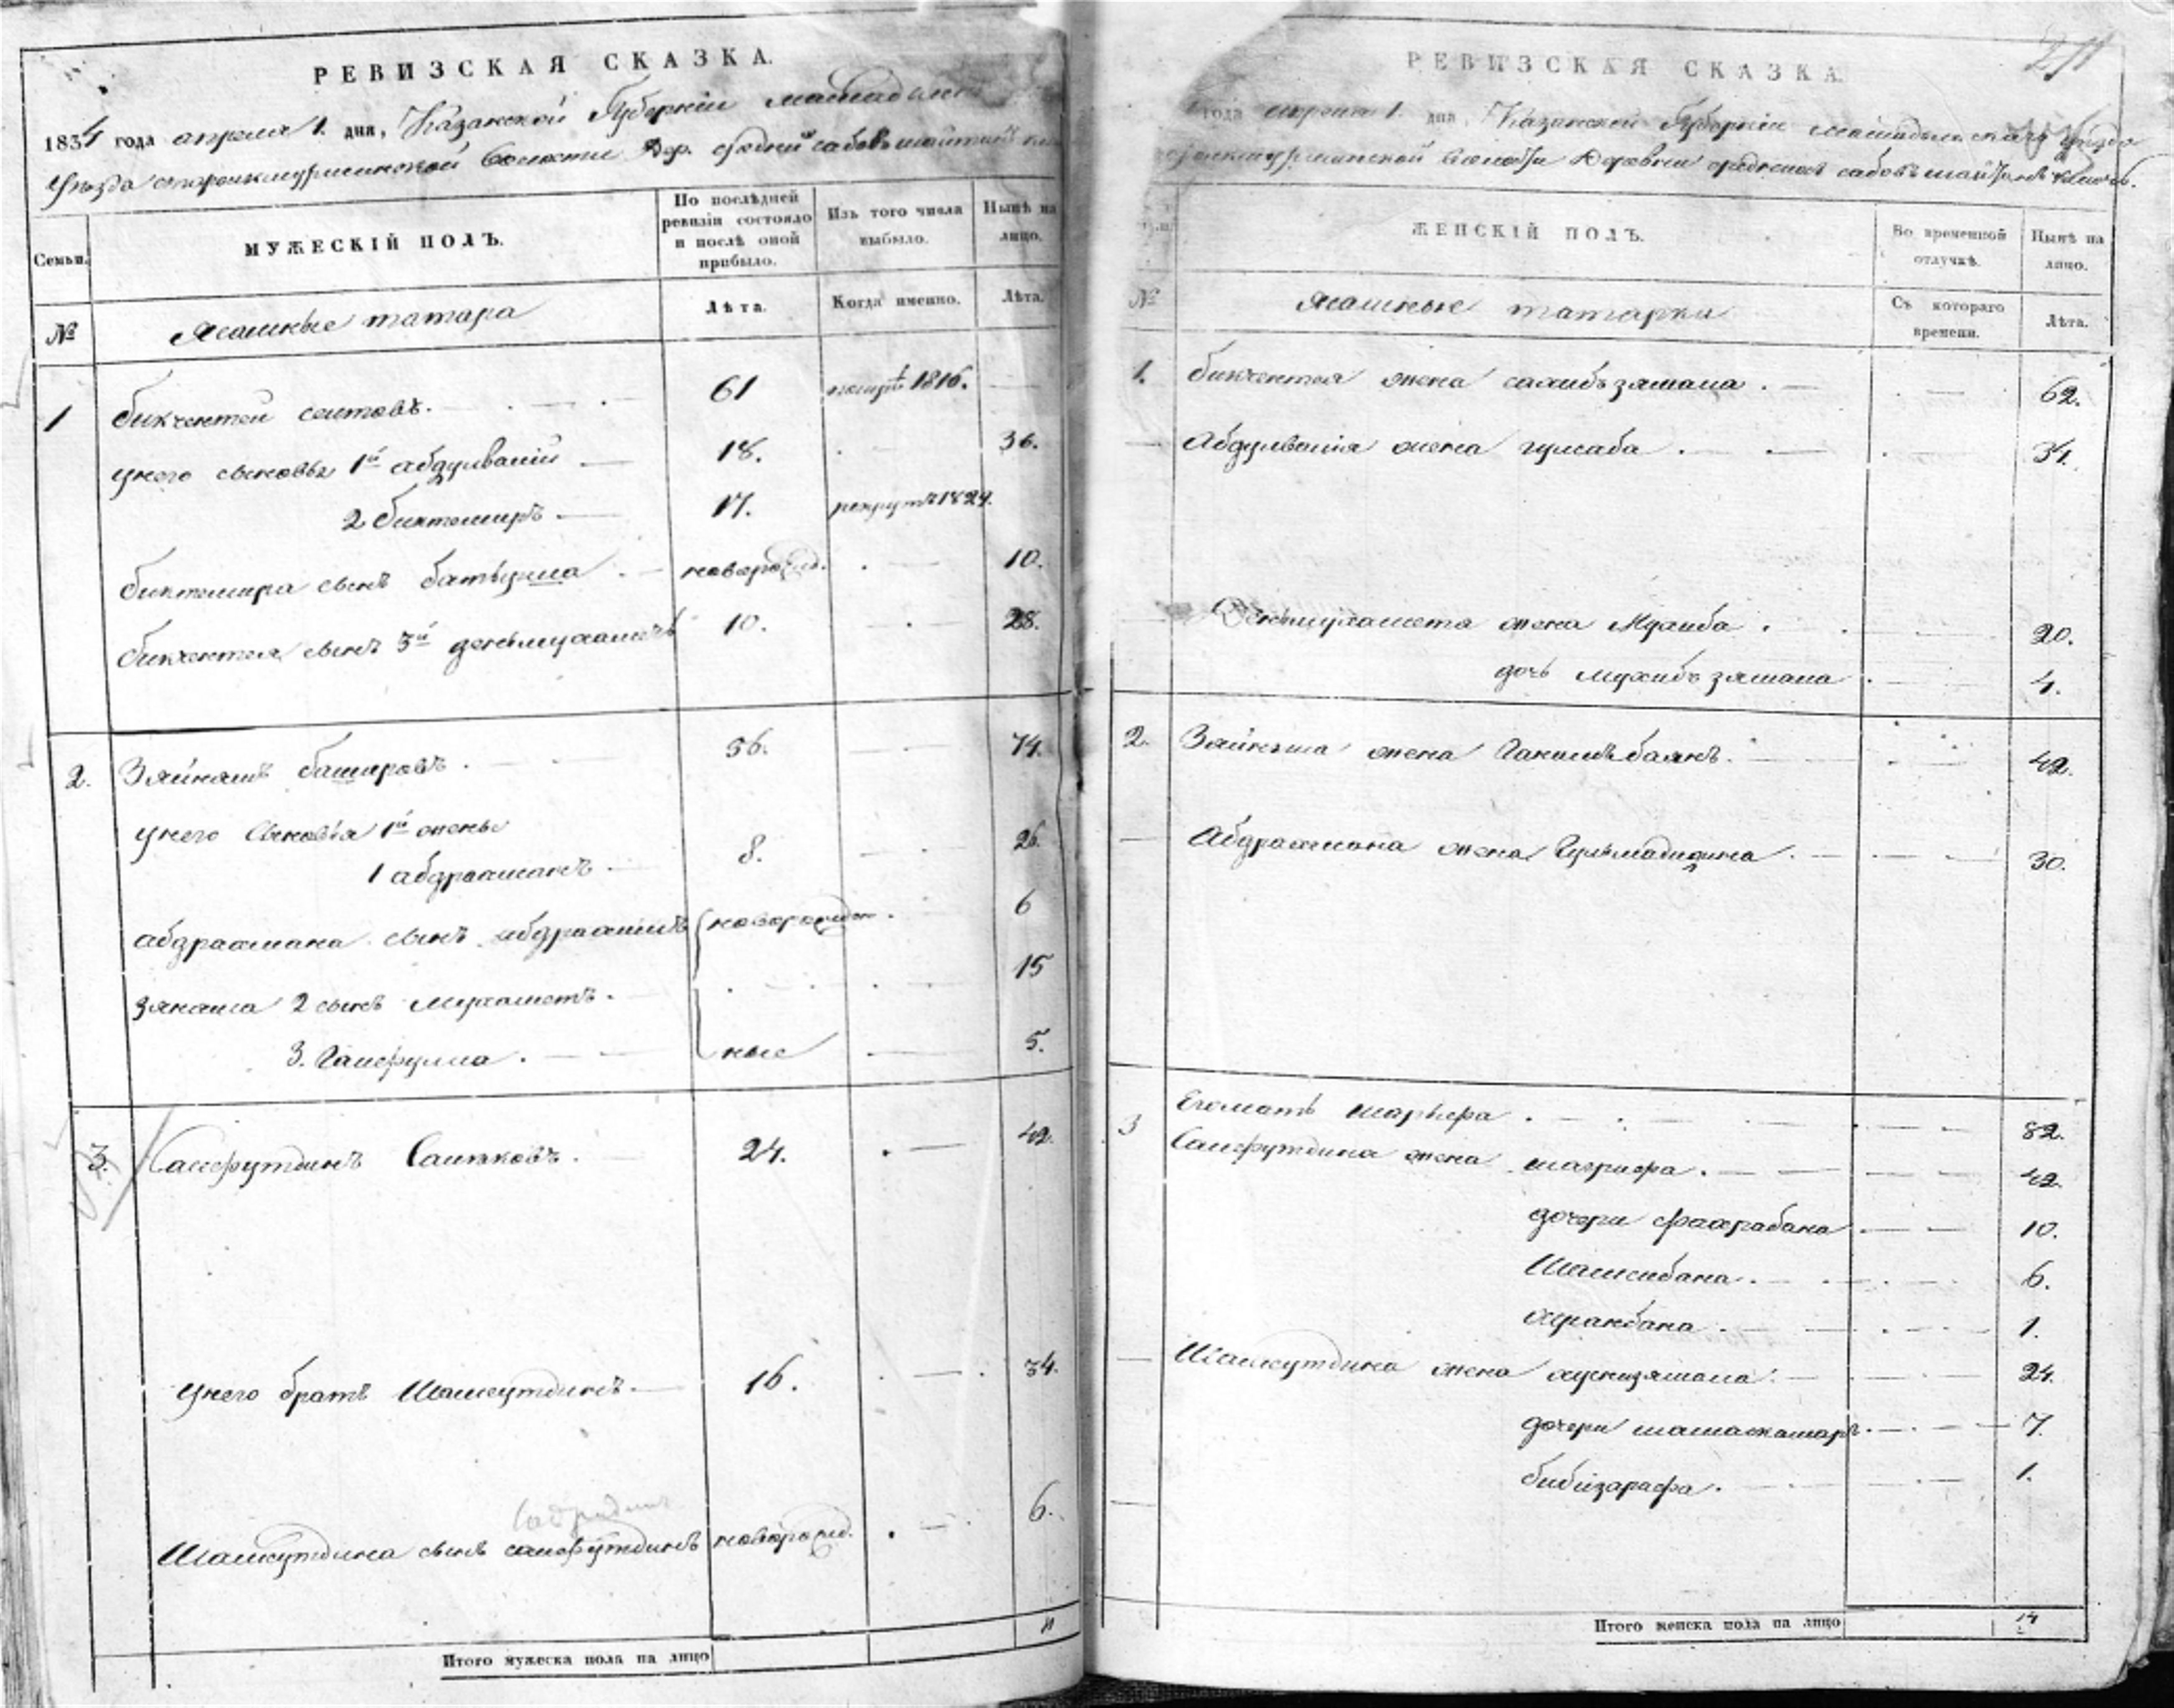 РЕВИЗСКАЯ СКАЗКА.
1834 года апреля 1. дня, Казанской Губерніи мамадышс
Уезда старокмурминской Волости Дер. средней сабовъ
Семьи.
МУЖЕСКІЙ ПОЛЪ.
По послѣдней ревизіи состояло и послѣ оной прибыло.
Изъ того числа выбыло.
Нынѣ на лицо.
№
Ясашные татара
Лѣта.
Когда именно.
Лѣта.
1 бикчентей сеитовъ. 61 1816.
у него сыновья 1й абдулвагій 18. 36.
2 биктемиръ 17. рекрутъ 1824.
биктемира сынъ батырша новорожд. 10.
бикчентея сынъ 3й деньмухаметъ 10. 28.
2. Зяйнашъ башировъ. 56. 74.
у него Сыновья 1й жены
1 абдрахманъ 8. 26.
абдрахмана сынъ абдрахимъ новорожден 6
зянаша 2 сынъ мухаметъ. 15
3. Гайфулла. ные 5.
3. Сайфутдинъ Саитковъ. 24. 42.
у него братъ Шамсутдинъ. 16. 34.
Садридин
Шамсутдина сынъ сайфутдинъ новорожд. 6.
Итого мужеска пола на лицо 11
211
РЕВИЗСКАЯ СКАЗКА
года апреля 1. дня, Казанской Губерніи мамадышскаго уезда
Волости Деревни средней сабовъ
№
ЖЕНСКІЙ ПОЛЪ.
Во временной отлучкѣ.
Нынѣ на лицо.
Ясашные татарки
Съ котораго времени.
Лѣта.
1. бикчентея жена сахибзямала. 62.
Абдулвагія жена гулсаба. 34.
Деньмухамета жена Мухиба. 20.
дочь мухибзямала 4.
2. Зяйнаша жена 42.
Абдрахмана жена 30.
3 Его мать шарыфа. 82.
Сайфутдина жена шагрифа. 42.
дочери фахрабана 10.
Шамсибана. 6.
1.
Шамсутдина жена хуснизямала. 24.
дочери шамсикамаръ. 7.
бибизарафа. 1.
Итого женска пола на лицо 14